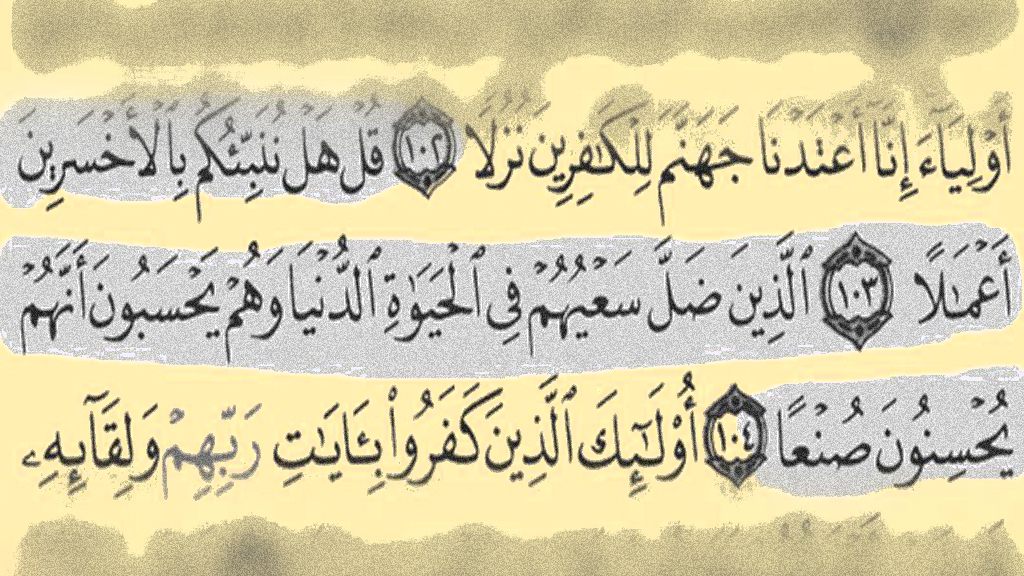 أَوْلِيَآءَ إِنَّآ أَعْتَدْنَا جَهَنَّمَ لِلْكَٰفِرِينَ نُزُلًا ١٠٢ قُلْ هَلْ نُنَبِّئُكُم بِٱلْأَخْسَرِينَ
أَعْمَٰلًا ١٠٣ ٱلَّذِينَ ضَلَّ سَعْيُهُمْ فِى ٱلْحَيَوٰةِ ٱلدُّنْيَا وَهُمْ يَحْسَبُونَ أَنَّهُمْ
يُحْسِنُونَ صُنْعًا ١٠٤ أُو۟لَٰٓئِكَ ٱلَّذِينَ كَفَرُوا۟ بِـَٔايَٰتِ رَبِّهِمْ وَلِقَآئِهِۦ